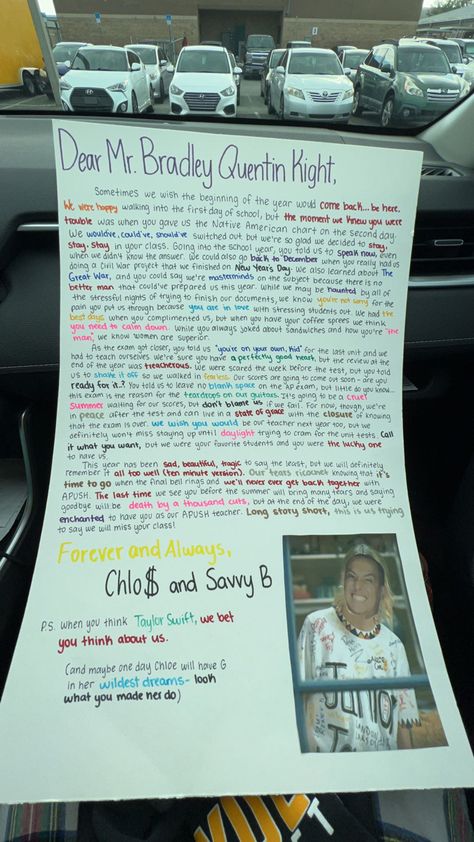 Dear Mr. Bradley Quentin Kight,
Sometimes we wish the beginning of the year would come back... be here.
We were happy walking into the first day of school, but the moment we knew you were
trouble was when you gave us the Native American chart on the second day.
We would've, could've, should've switched out but we're so glad we decided to stay,
stay, stay in your class. Going into the school year, you told us to speak now, even
when we didn't know the answer. We could also go back to December when you really had us
doing a Civil War project that we finished on New Years Day. We also learned about The
Great War, and you could say we're masterminds on the subject because there is no
better man that could've prepared us this year. While we may be haunted by all of
the stressful nights of trying to finish our documents, we know you're not sorry for the
pain you put us through because you are in love with stressing students out. We had the
best days when you complimented us, but when you have your coffee sprees we think
you need to calm down. While you always joked about sandwiches and how you're "the
man", we know women are superior.
As the exam got closer, you told us "you're on your own, kid" for the last unit and we
had to teach ourselves. We're sure you have a perfectly good heart, but the review at the
end of the year was treacherous. We were scared the week before the test, but you told
us to shake it off so we walked in fearless. Our scores are going to come out soon - are you
ready for it..? You told us to leave no blank space on the AP exam, but little do you know...
this exam is the reason for the teardrops on our guitars. It's going to be a cruel
summer waiting for our scores, but don't blame us if we fail. For now, though, we're
in peace after the test and can live in a state of grace with the closure of knowing
that the exam is over. We wish you would be our teacher next year too, but we
definitely won't miss staying up until daylight trying to cram for the unit tests. Call
it what you want, but we were your favorite students and you were the lucky one
to have us.
This year has been sad, beautiful, tragic to say the least, but we will definitely
remember it all too well (ten minute version). Our tears ricochet knowing that it's
time to go when the final bell rings and we'll never ever get back together with
APUSH. The last time we see you before the summer will bring many tears and saying
goodbye will be death by a thousand cuts, but at the end of the day, we were
enchanted to have you as our APUSH teacher. Long story short, this is us trying
to say we will miss your class!
Forever and Always,
Chlo$ and Savvy B
P.S. when you think Taylor Swift, we bet
you think about us.
(and maybe one day Chloe will have G
in her wildest dreams- look
what you made her do)